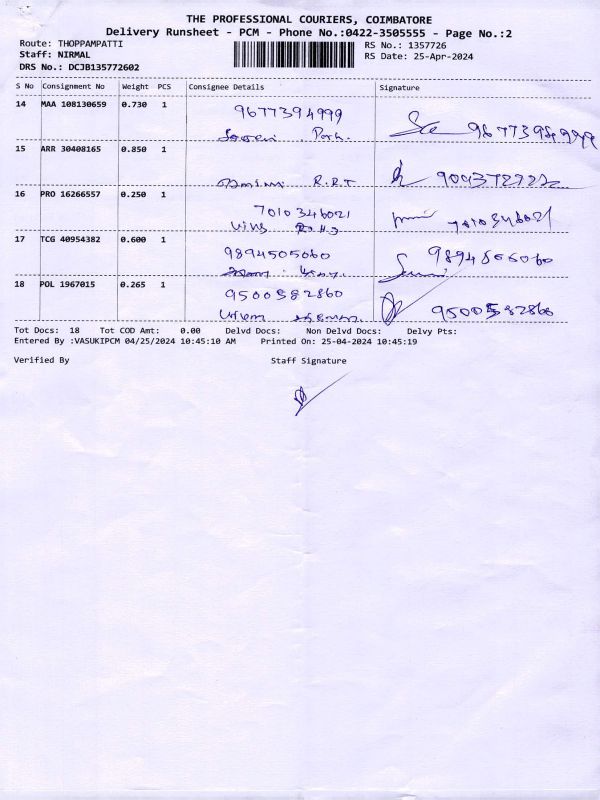 THE PROFESSIONAL COURIERS, COIMBATORE
Delivery Runsheet - PCM - Phone No.:0422-3505555 - Page No.:2
Route: THOPPAMPATTI
RS No.: 1357726
Staff: NIRMAL
RS Date: 25-Apr-2024
DRS No.: DCJB135772602
S No Consignment No Weight PCS Consignee Details Signature
14 MAA 108130659 0.730 1 9677394999
9677394999
15 ARR 30408165 0.850 1
R.R.T
16 PRO 16266557 0.250 1 7010346021
7010346021
17 TCG 40954382 0.600 1 9894505060
18 POL 1967015 0.265 1 9500582860
9500582860
Tot Docs: 18 Tot COD Amt: 0.00 Delvd Docs: Non Delvd Docs: Delvy Pts:
Entered By :VASUKIPCM 04/25/2024 10:45:10 AM Printed On: 25-04-2024 10:45:19
Verified By Staff Signature